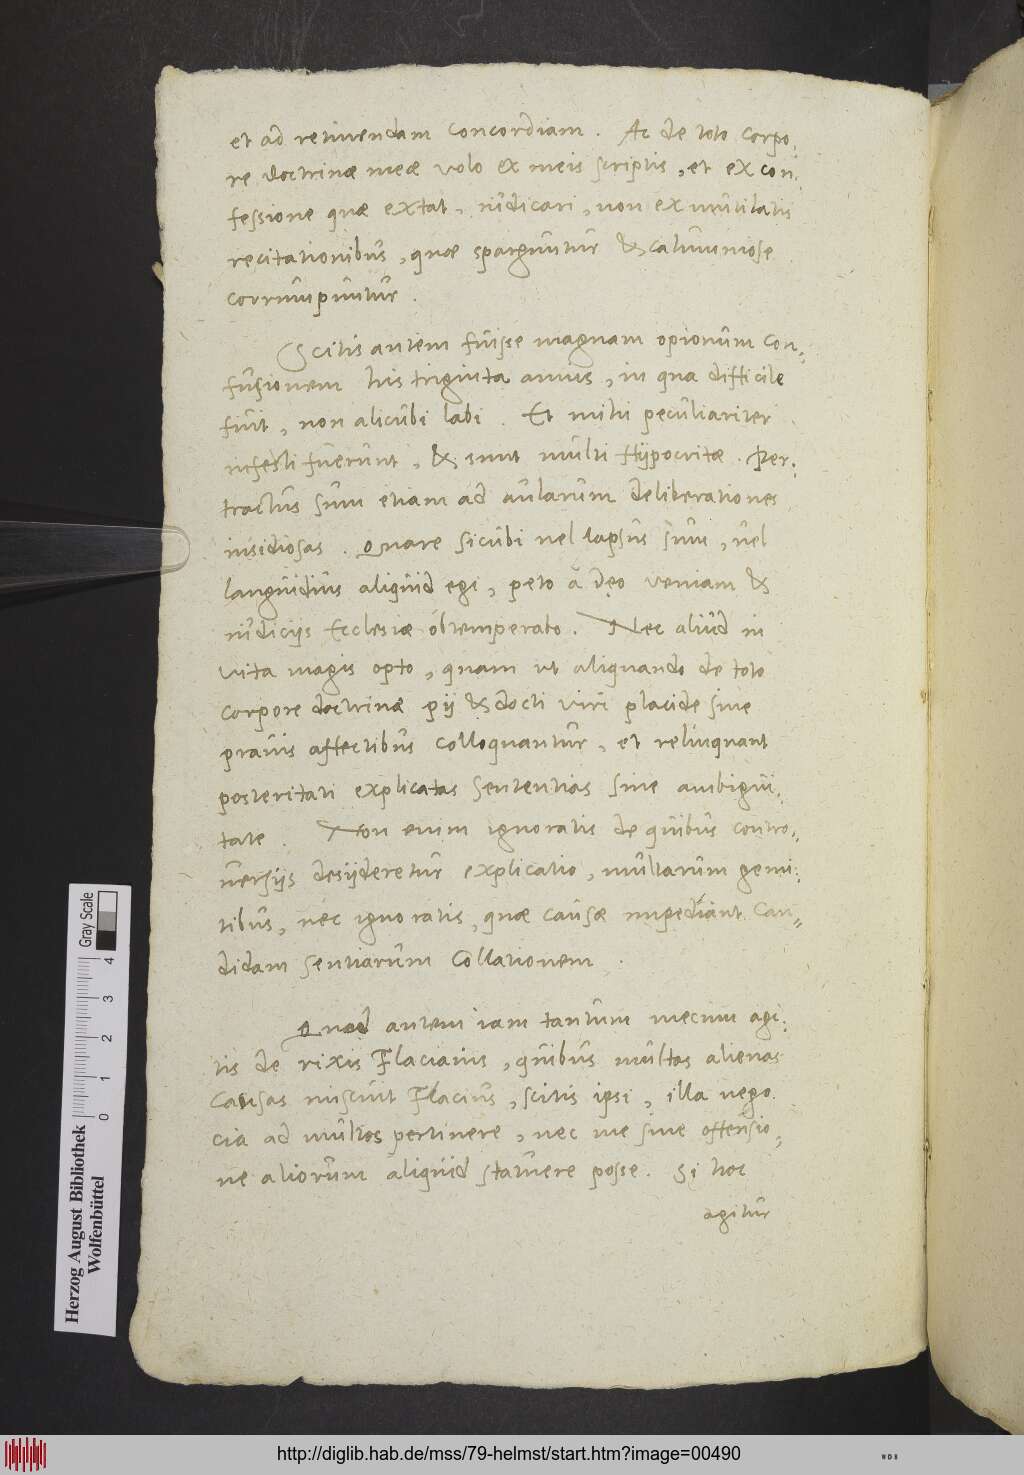 et ad retinendam concordiam. Ac de toto corpo-
re doctrinæ meæ volo ex meis scriptis, et ex con-
fessione quæ extat, iudicari, non ex mutilatis
recitationibus, quæ sparguntur & calumniose
corrumpuntur.
Scitis autem fuisse magnam opionum con-
fusionem his triginta annis, in qua difficile
fuit, non alicubi labi. Et mihi peculiariter
infesti fuerunt, & sunt multi Hypocritæ. Per-
tractus sum etiam ad aularum deliberationes
insidiosas. Quare sicubi vel lapsus sum, vel
languidius aliquid egi, peto à deo veniam &
iudicijs Ecclesiæ obtemperabo. Nec aliud in
vita magis opto, quam ut aliquando de toto
corpore doctrinæ pij & docti viri placide sine
prauis affectibus colloquantur, et relinquant
posteritati explicatas sententias sine ambigui-
tate. Non enim ignoratis de quibus contro-
uersijs desijderetur explicatio, multarum gemi-
tibus, nec ignoratis, quæ causæ impediant can-
didam sentiarum collationem.
Quod autem iam tantum mecum agi-
tis de rixis Flacianis, quibus multas alienas
causas miscuit Flacius, scitis ipsi, illa nego-
cia ad multos pertinere, nec me sine offensio-
ne aliorum aliquid statuere posse. Si hoc
agitur
Gray Scale
0 1 2 3 4
Herzog August Bibliothek
Wolfenbüttel
http://diglib.hab.de/mss/79-helmst/start.htm?image=00490
WDB